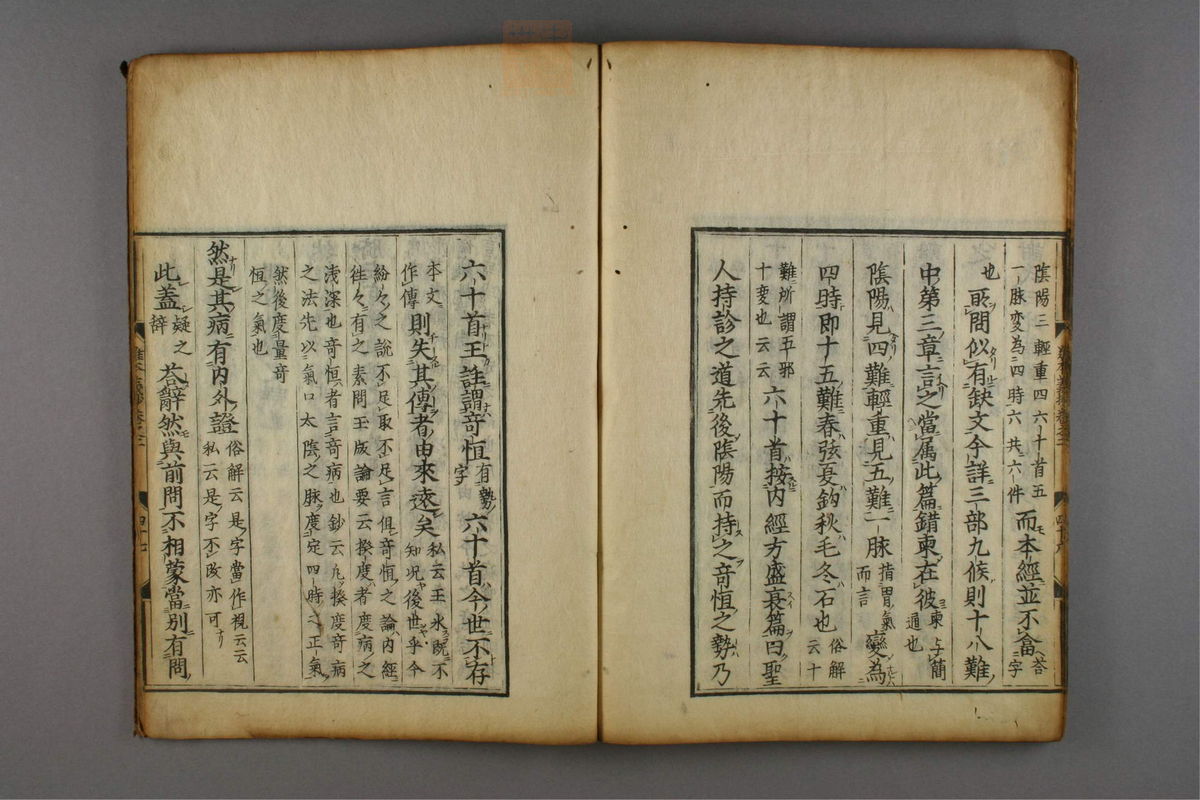 陰陽三輕重四六十首五
一脉変為四時六共六件
而本經並不畣
荅字
也
所問似有缺文今詳三部九候則十八難
中第三章言之當属此篇錯柬在彼
柬与簡
通也
陰陽見四難輕重見五難一脉
指胃氣
而言
變為
四時即十五難春弦夏鈎秋毛冬石也
俗解
云十
難所謂五邪
十変也云云
六十首按内經方盛衰篇曰聖
人持診之道先後陰陽而持之奇恒之勢乃
六十首王註謂奇恒
有勢
字
六十首今世不存
本文
作傳
則失其傳者由來遠矣
私云王氷既不
知况後世乎今
紛々之説不足取不足言俱奇恒之論内經
徃々有之素問玉版論要云揆度者度病之
浅深也奇恒者言奇病也鈔云凢揆度奇病
之法先以氣口太陰之脉度定四時之正氣
然後度量奇
恒之氣也
然是其病有内外證
俗解云是字當作視云云
私云是字不改亦可
此蓋
疑之
辞
荅辭然與前問不相蒙當別有問